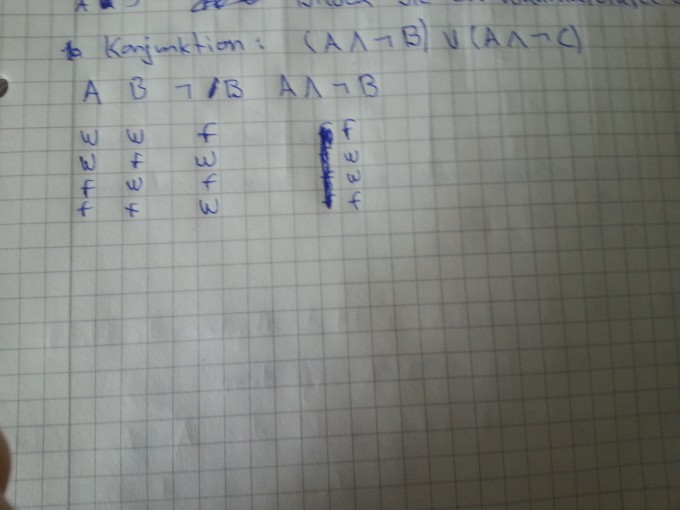 Konjunktion: (A ∧ ¬ B) ∨ (A ∧ ¬ C)
A B ¬ B A ∧ ¬ B
w w f f
w f w w
f w f w
f f w f